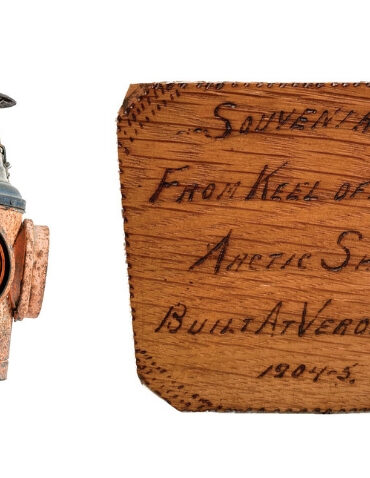 SOUVENIR
FROM KEEL OF
ARCTIC SH
BUILT AT VERO
1904-5.